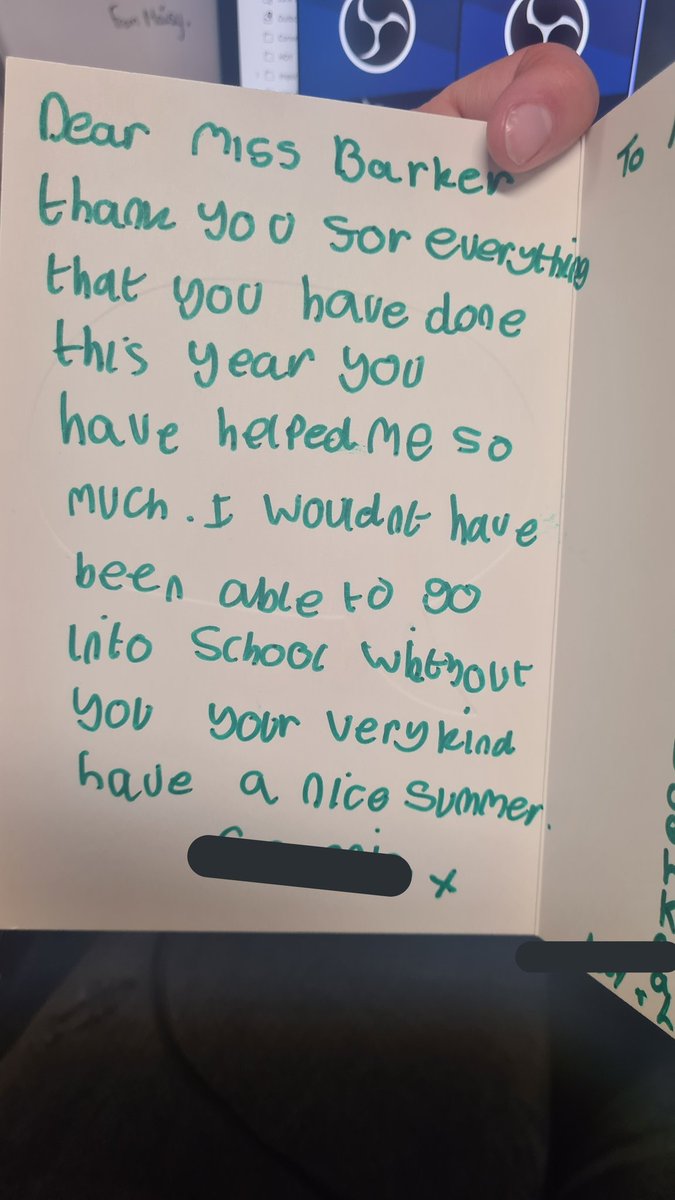 From Maisy.
Dear Miss Barker
thank you for everything
that you have done
this year you
have helped me so
much. I wouldnt have
been able to go
into school whithout
you your very kind
have a nice summer.
x
To